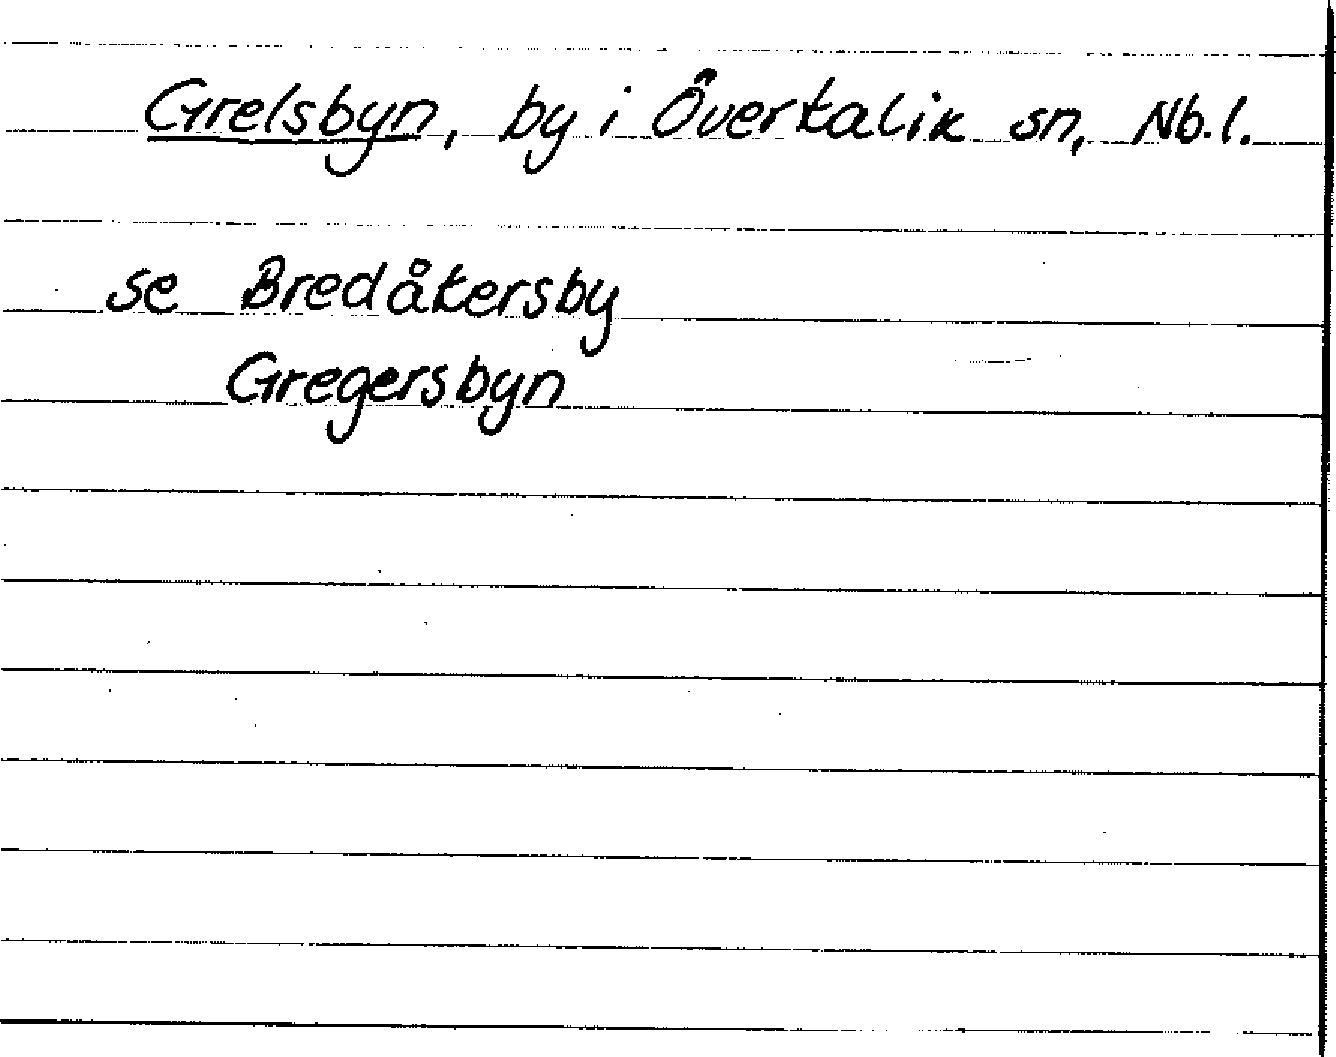 Grelsbyn, by i Övertalik sn, Nb.l.
se Bredåkersby
Gregersbyn